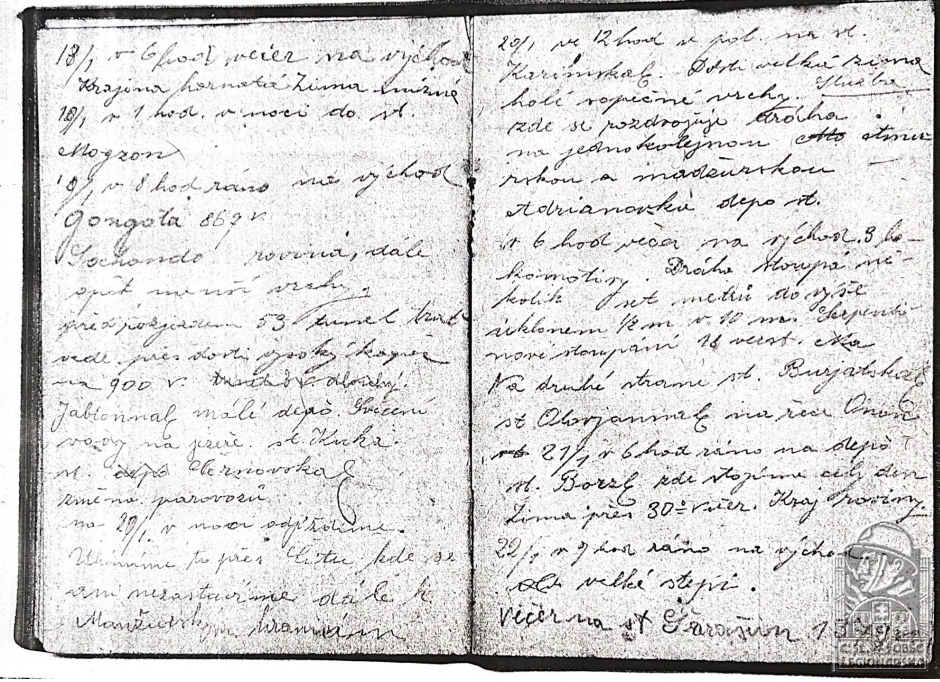 18/1 v 6 hod večer na východ
Krajina hornatá Zima mírná
18/1 v 1 hod. v noci do st.
Mogzon
18/1 v 8 hod ráno na východ
Gongota 867 v.
Sochondo rovina, dále
opět menší vrchy,
před rozjezdem 53 tunel trať
vede přes dosti vysoký kopec
na 900 v. dlouhý.
Jablonnaě malé depo.
vody na st. Kuka.
st. Černovskaě
změna parovozů
na 20/1. v noci odjíždíme.
to přes Čitu kde se
ani nezastavíme dále k
Manžursk
20/1 ve 12 hod v pol. na st.
Karimskaě. Dosti velká zima
holé sopečné vrchy. Služba
zde se rozdvojuje dráha
na jednokolejnou amur-
skou a madžurskou
Adrianovka depo st.
v 6 hod večer na východ. 3 lo-
komotivy. Dráha stoupá ně-
kolik set metrů do výše
úklonem 1/2 m v 10 m. Serpenti-
nové stoupání 18 verst.
Na druhé straně st. Burjatskaě
st Olovjannaě na řece Onon
21/1 v 6 hod ráno na depo
st. Borzě zde stojíme celý den
Zima přes 30° večer. Kraj roviny.
22/1 v 9 hod ráno na východ
velké stepi.
Večer na st
ČS. OBEC
LEGIONÁŘSKÁ